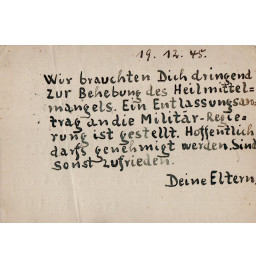 19. 12. 45.
Wir brauchten Dich dringend
zur Behebung des Heilmittel=
mangels. Ein Entlassungsan=
trag an die Militär-Regie=
rung ist gestellt. Hoffentlich
darfs genehmigt werden. Sind
sonst zufrieden.
Deine Eltern.